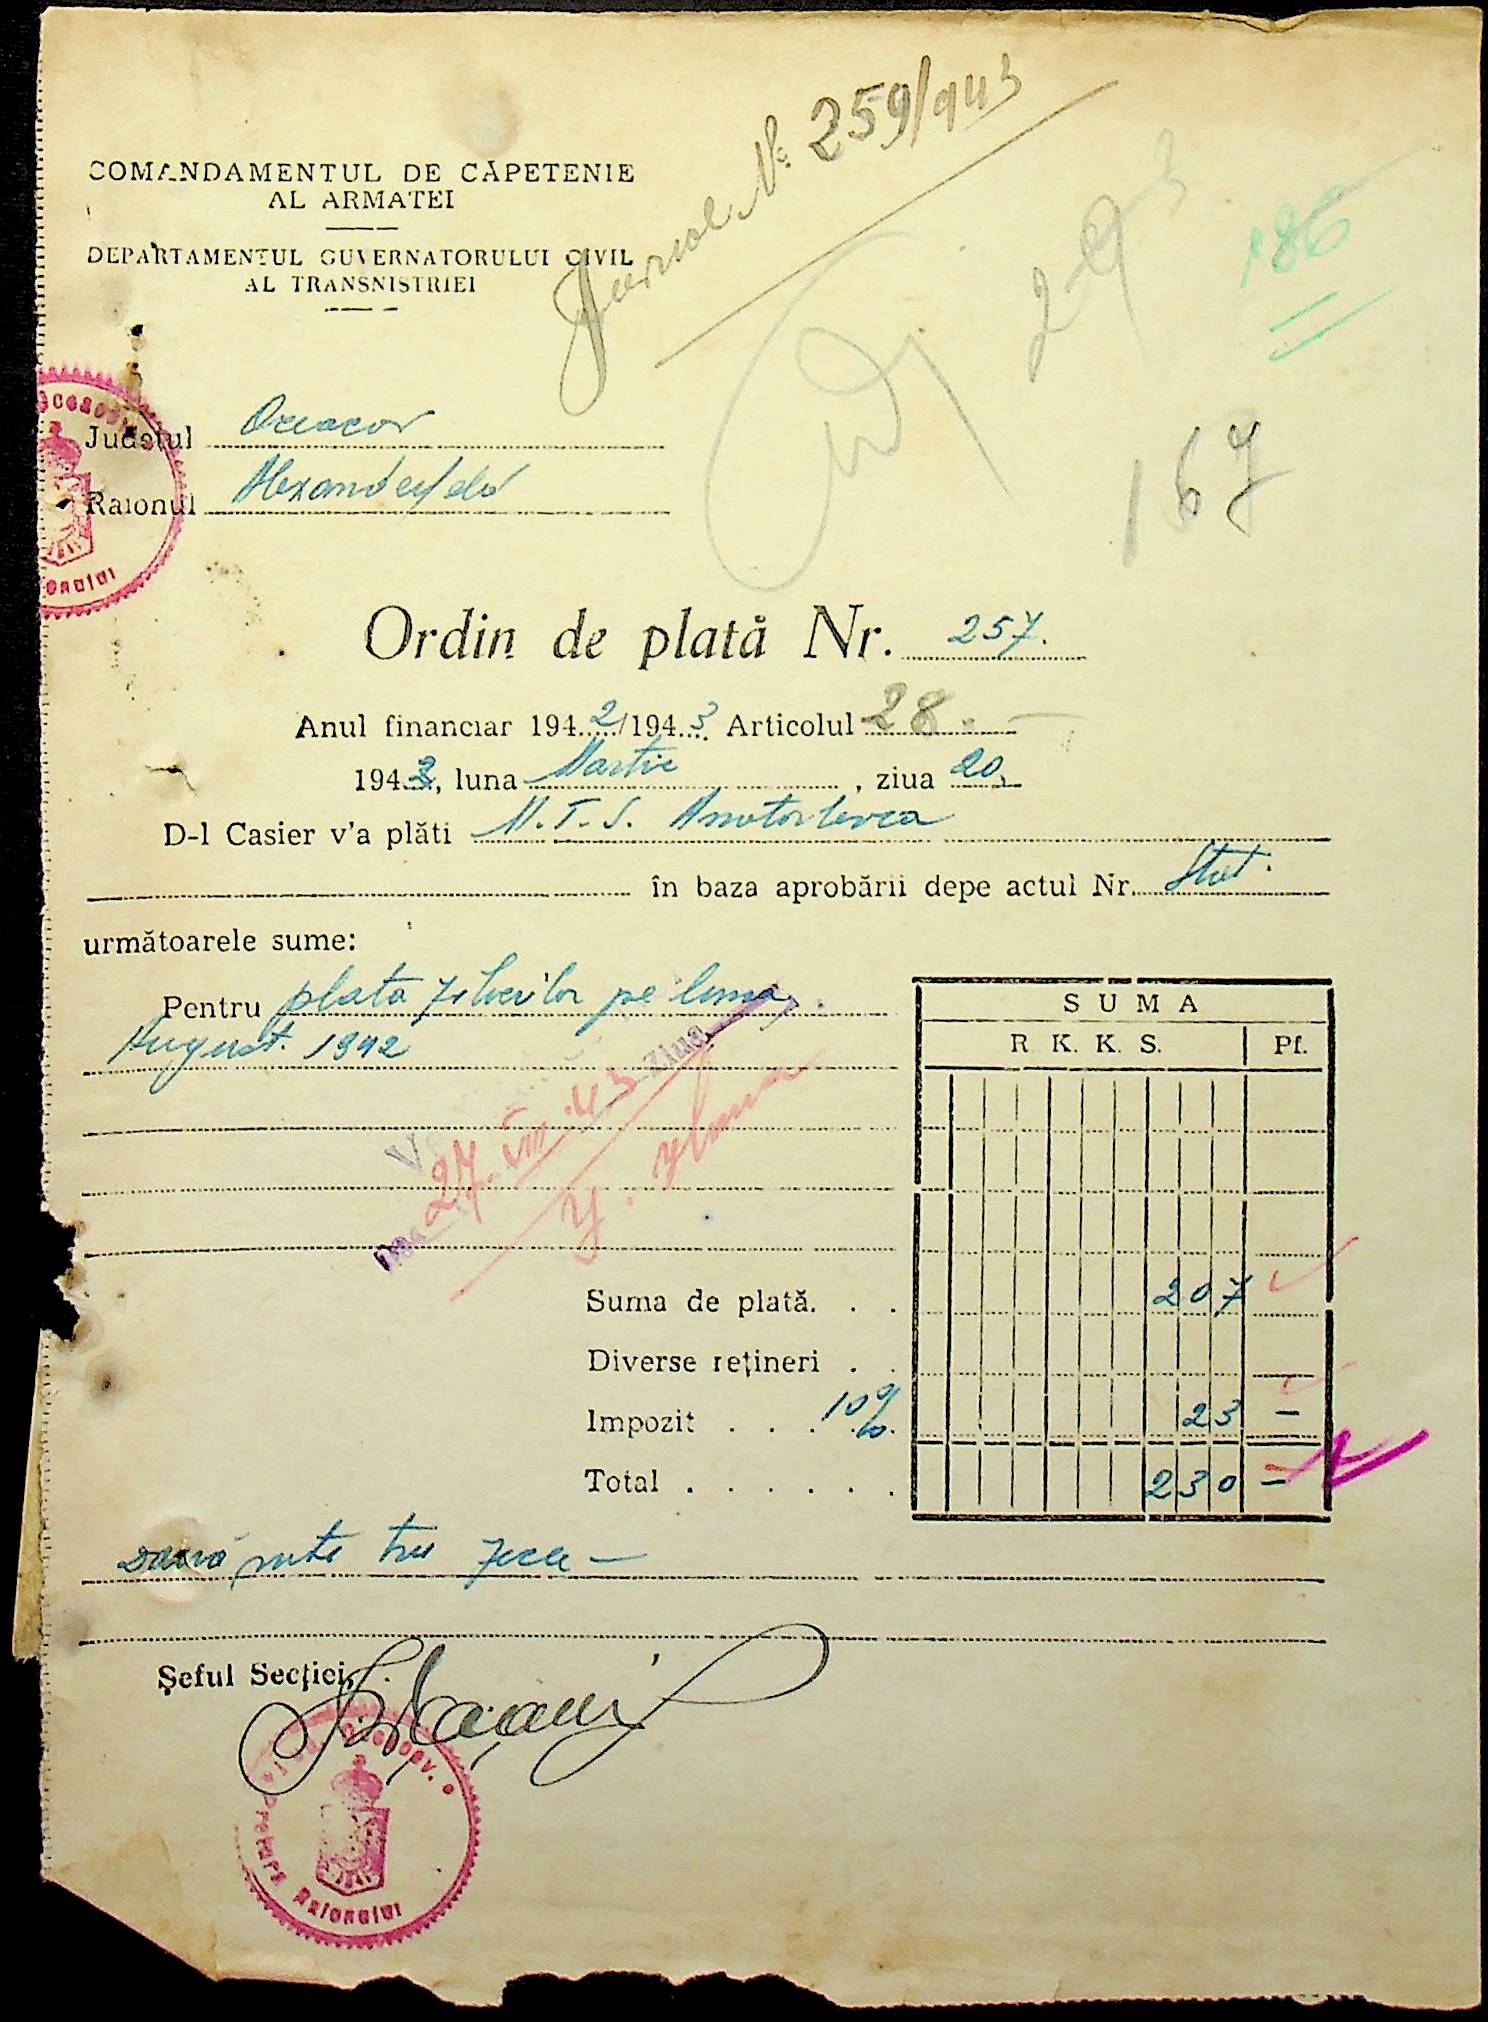 Jurnal No. 259/943
COMANDAMENTUL DE CĂPETENIE
AL ARMATEI
DEPARTAMENTUL GUVERNATORULUI CIVIL
AL TRANSNISTRIEI
293
186
Județul Oceacov
Raionul Alexanderfeld
167
Ordin de plată Nr. 257.
Anul financiar 1942/1943 Articolul 28.—
1943, luna Martie, ziua 20.
D-l Casier v'a plăti M.T.S.
în baza aprobării depe actul Nr. Stat.
următoarele sume:
Pentru plata zilierilor pe luna
August. 1942
SUMA
R. K. K. S. Pf.
Ziua
27 III 43
Suma de plată. . . 207
Diverse rețineri . .
Impozit . . . 10% 23 —
Total . . . . . . 230 —
două sute trei zeci —
Șeful Secției,
Pretura Raionului